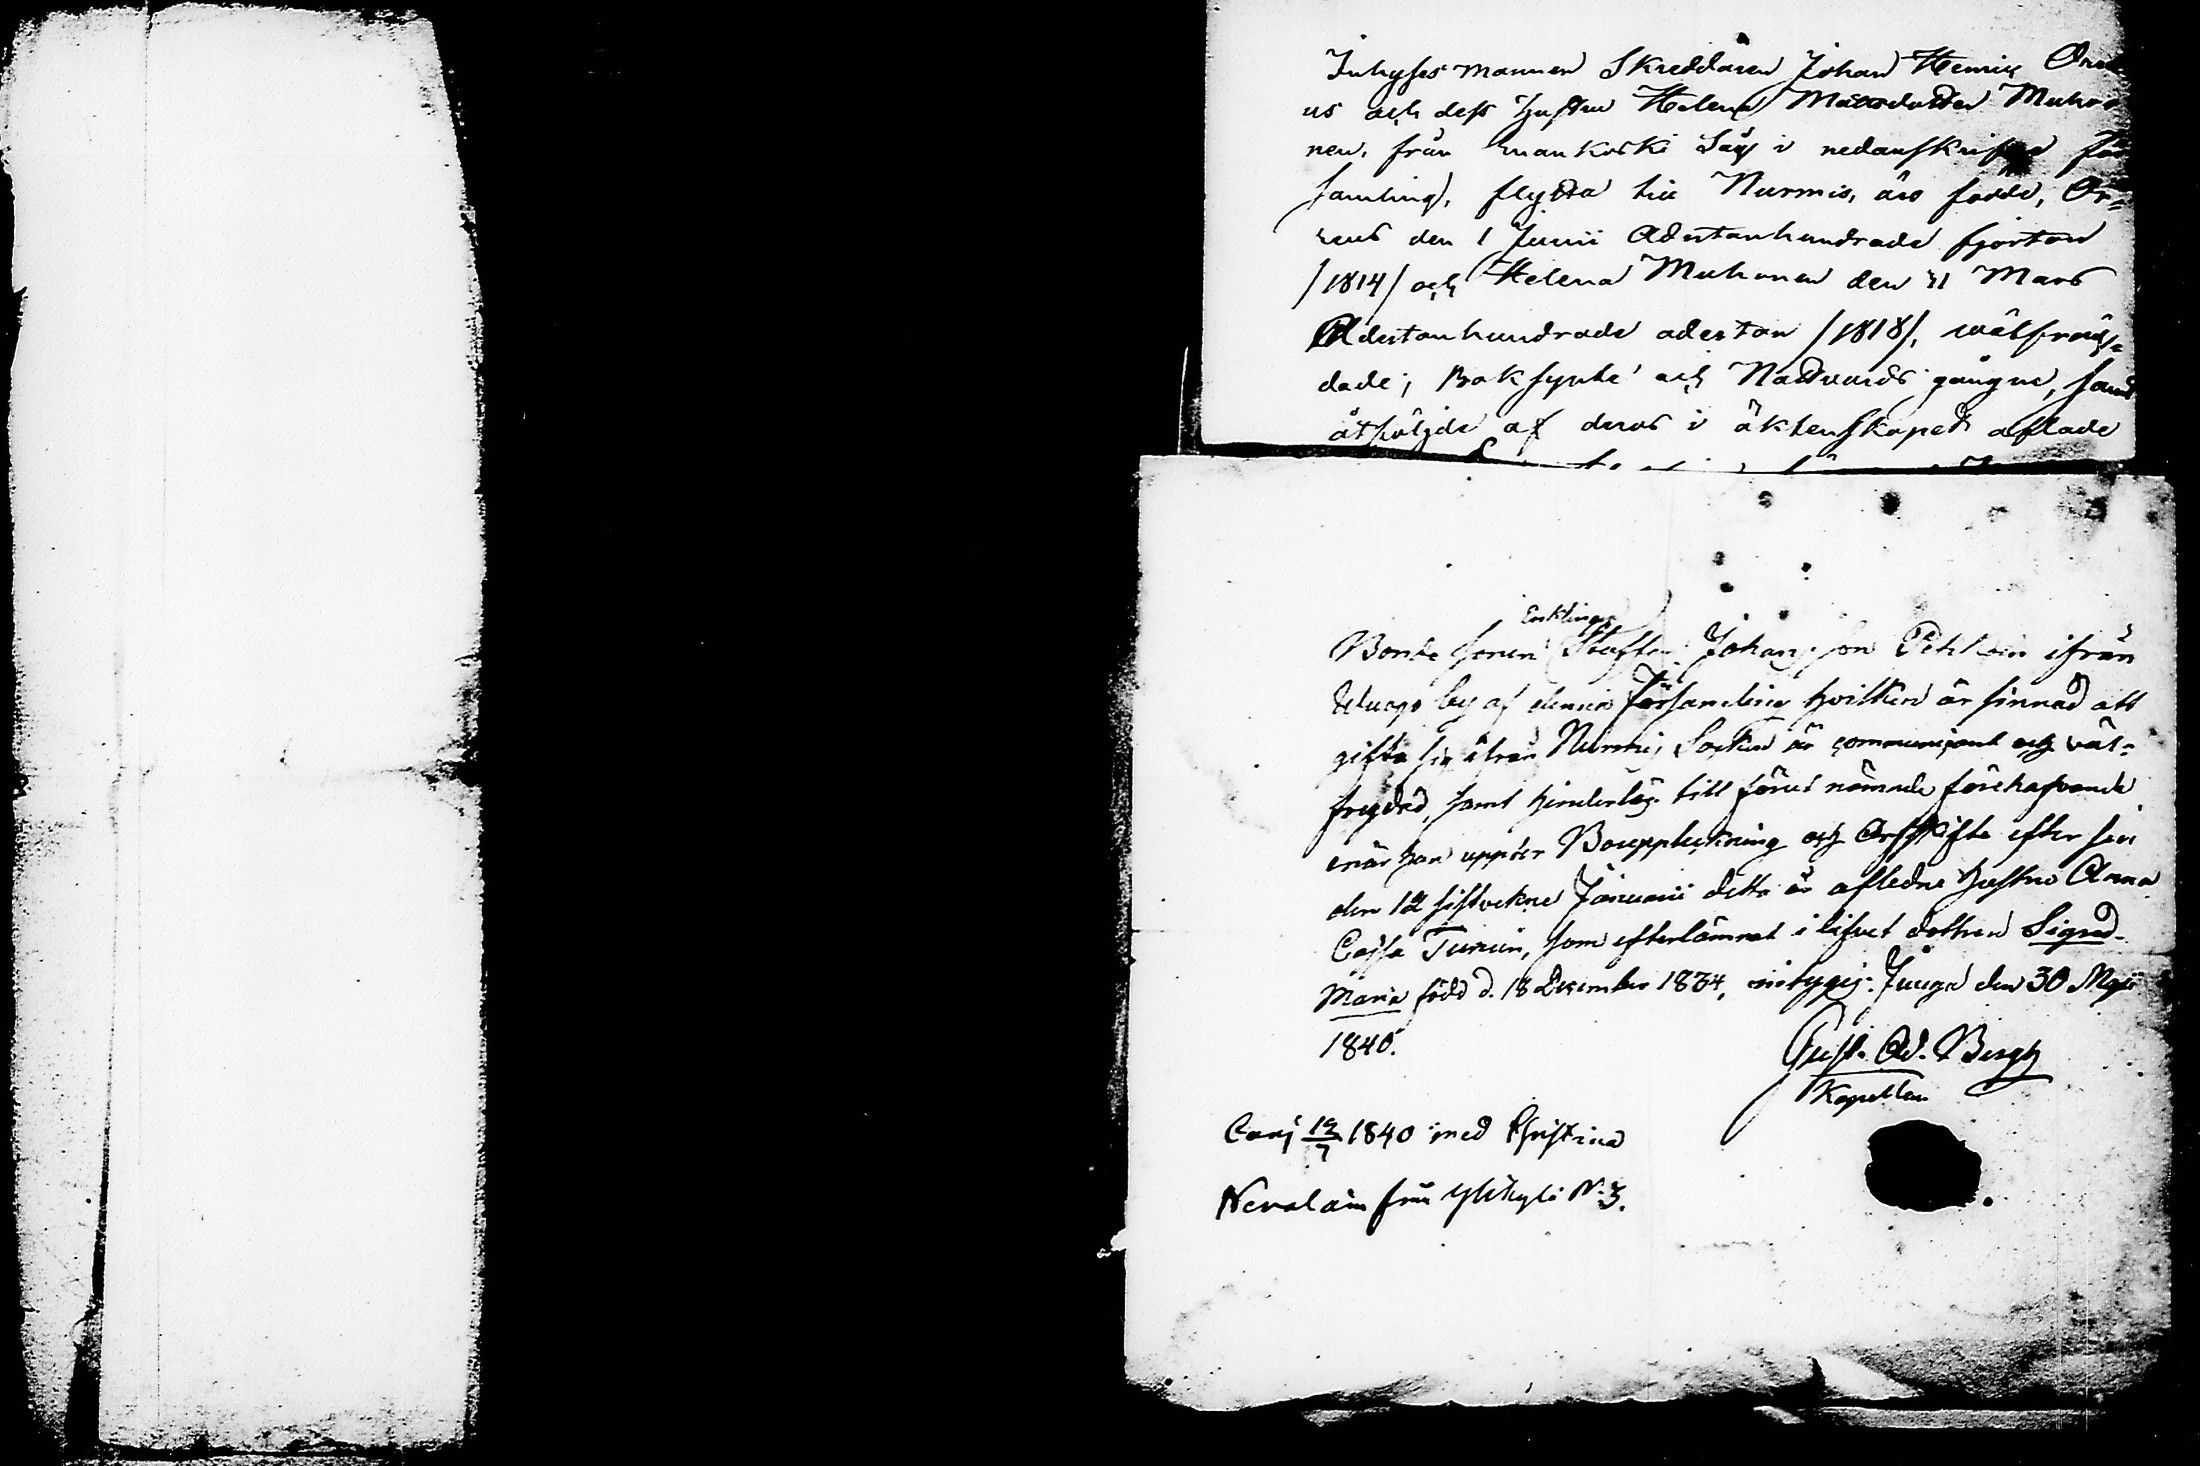 Inhyses mannen Skreddaren Johan Henric Oren
us och dess hustru Helena Matsdotter Muho
nen, från koski Såg i nedanskrifne för
samling, flytta till Nurmis, äro födde, Or=
enus den 1 Junii Adertonhundrade fjorton
/1814/ och Helena Muhonen den 31 Mars
Adertonhundrade aderton /1818/, välfräg=
dade, Boksynte och Nattvards gångne, samt
åtföljde af deras i äktenskapet aflade
Enklingen
Bonde sonen Staffan Johansson ifrån
by af denna Församling hvilken är sinnad att
gifta sig ifrån Nurmis Socken är communicant och väl=
frejdad, samt hinderlös till förut nämnde förehafvande
enär han uppter Bouppteckning och Arfskifte efter sin
den 12 sistvekne Januarii detta år aflednе hustru Anna
Cajsa Turuin, som efterlämnat i lifvet dottren Sigrid
Maria född d. 18 December 1834, intygas. Juuga den 30 Maji
1840.
Gust. Ad. Bergh
Kapellan
Conj 12/7 1840 med Christina
Nevalain från Ylikylä N. 3.